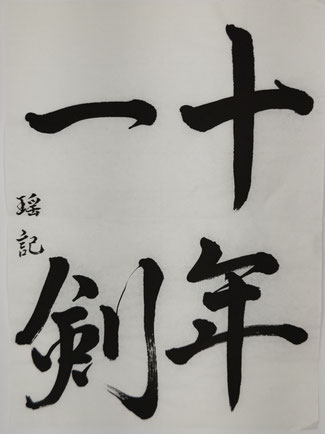 十年
一剣
瑶記